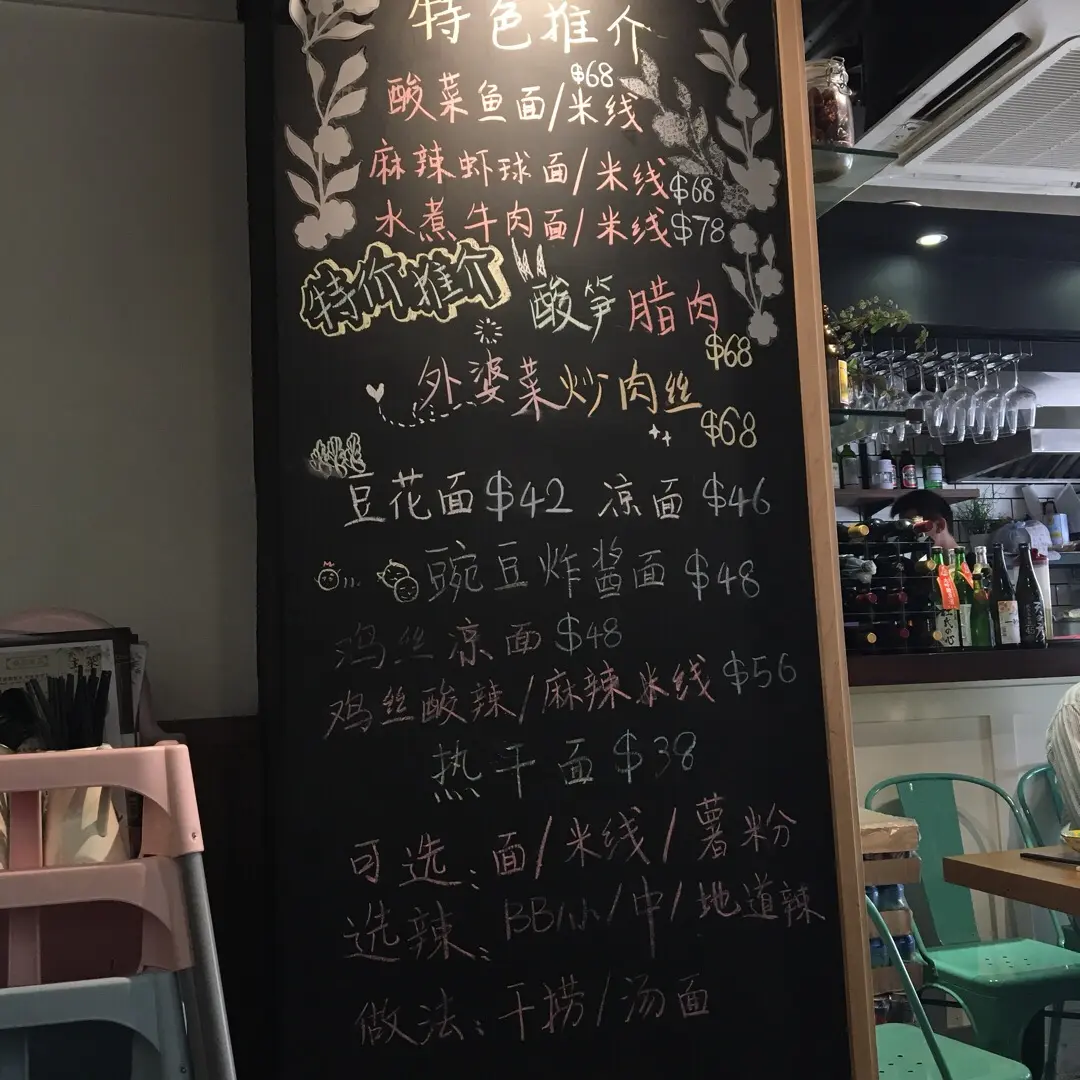 特色推介
$68
酸菜鱼面/米线
麻辣虾球面/米线$68
水煮牛肉面/米线$78
特价推介
酸笋腊肉
$68
外婆菜炒肉丝
$68
豆花面$42 凉面$46
豌豆炸酱面$48
鸡丝凉面$48
鸡丝酸辣/麻辣米线$56
热干面$38
可选:面/米线/薯粉
选辣:BB/小/中/地道辣
做法:干捞/汤面